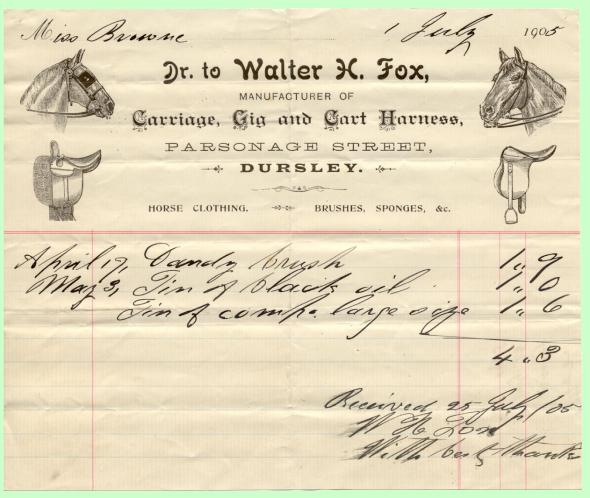 Miss Browne 1 July 1905
Dr. to Walter H. Fox,
MANUFACTURER OF
Carriage, Gig and Cart Harness,
PARSONAGE STREET,
DURSLEY.
HORSE CLOTHING. BRUSHES, SPONGES, &c.
April 17, Dandy brush 1 " 9
May 3, Tin of black oil 1 " 0
Tin of comp. large size 1 " 6
4 " 3
Received 25 July / 05
W H Fox
With best thanks